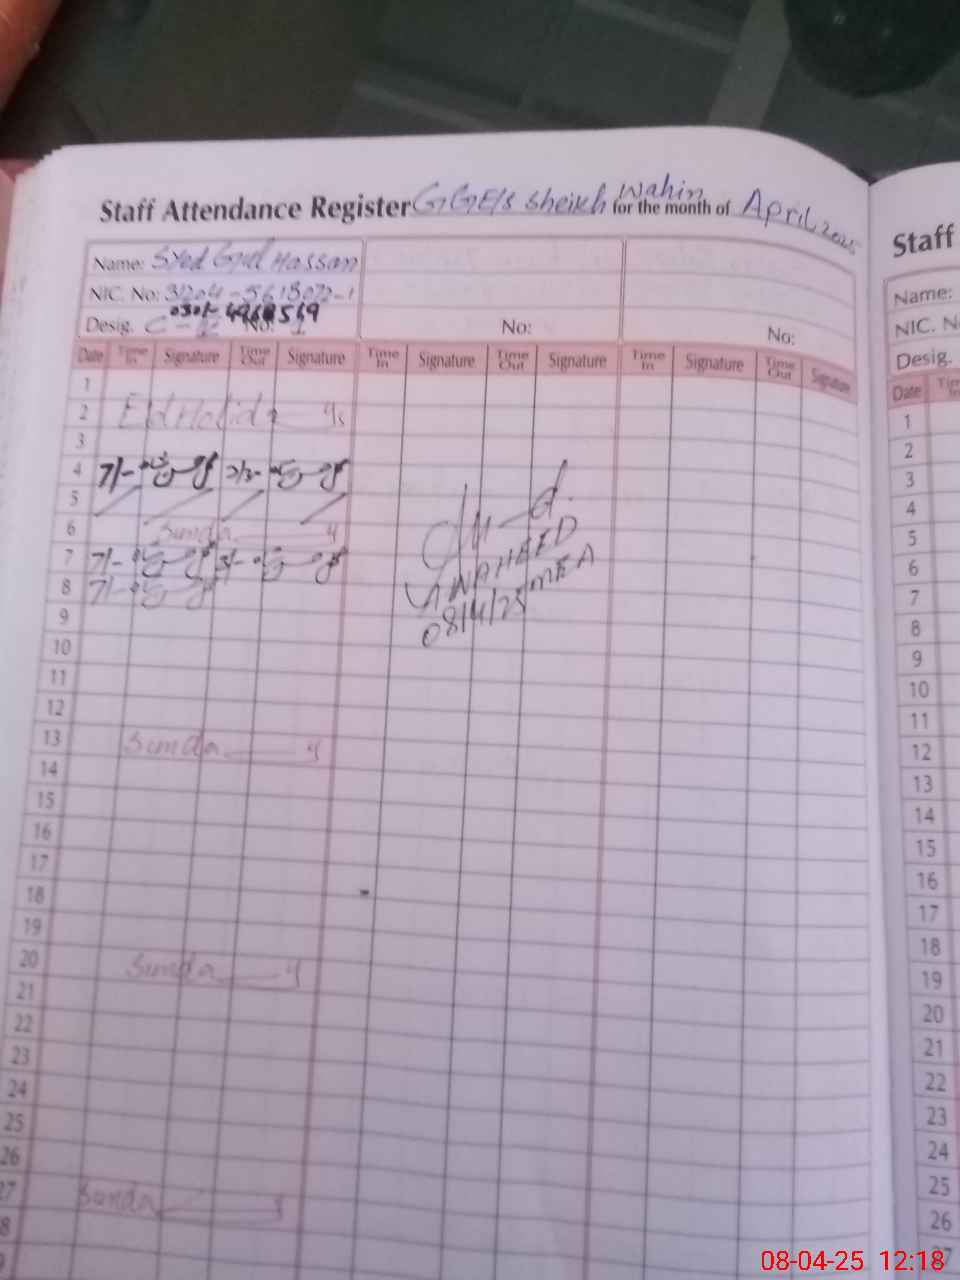 Staff Attendance Register GGE/S Sheikh Wahin for the month of April 2025
Name: Syed Gul Hassan
NIC. No: 31204-5618072-1
0301-4960569
Desig. C-IV No: 1 No: No:
Date Time In Signature Time Out Signature Time In Signature Time Out Signature Time In Signature Time Out Signature
1
2 Eid Holidays
3
4 7/-
5
6 Sunday
7 7/-
8 7/-
WAHEED
08/4/25 MEA
9
10
11
12
13 Sunday
14
15
16
17
18
19
20 Sunday
21
22
23
24
25
26
27 Sunday
8
Staff
Name:
NIC. No
Desig.
Date Time In
1
2
3
4
5
6
7
8
9
10
11
12
13
14
15
16
17
18
19
20
21
22
23
24
25
26
27
08-04-25 12:18